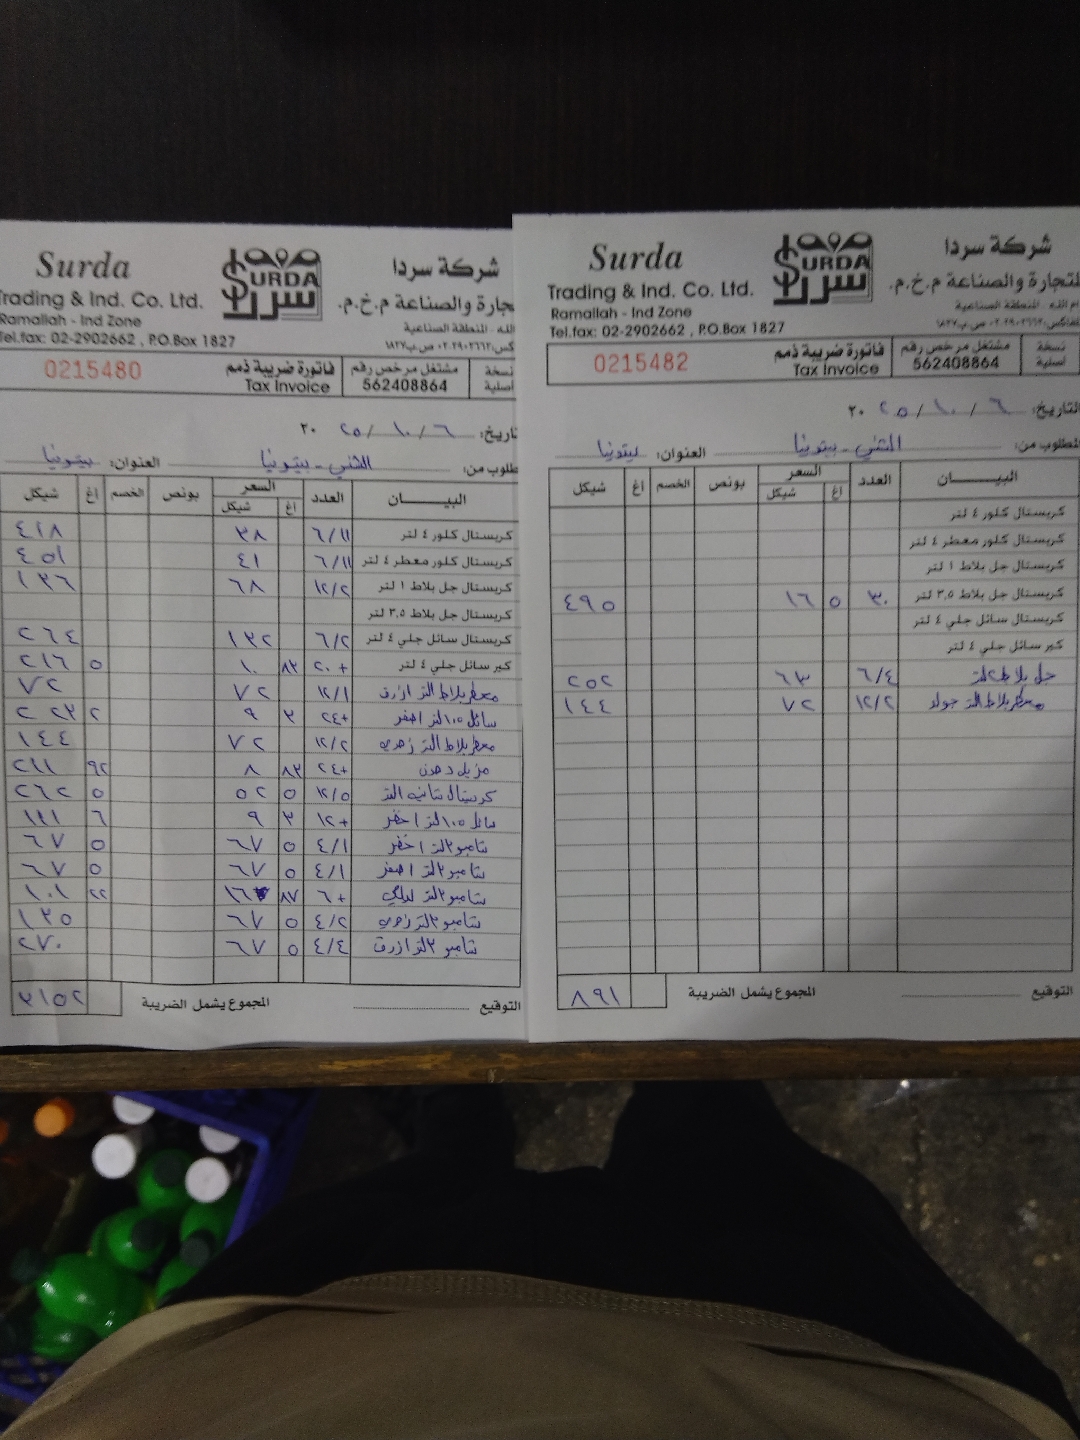 Surda
SURDA
سردا
شركة سردا
Trading & Ind. Co. Ltd.
جارة والصناعة م.خ.م.
Ramallah - Ind Zone
الله - المنطقة الصناعية
Tel.fax: 02-2902662 , P.O.Box 1827
كس:٠٢-٢٩٠٢٦٦٢ ص.ب ١٨٢٧
0215480
فاتورة ضريبة ذمم
Tax Invoice
مشتغل مرخص رقم
562408864
نسخة
أصلية
اريخ: ٦ / ١٠ / ٢٥ ٢٠
طلوب من: المثنى - بيتونيا العنوان: بيتونيا
البيـــــان العدد السعر بونص الخصم اغ شيكل
اغ شيكل
كريستال كلور ٤ لتر ٦/١١ ٣٨ ٤١٨
كريستال كلور معطر ٤ لتر ٦/١١ ٤١ ٤٥١
كريستال جل بلاط ١ لتر ١٢/٢ ٦٨ ١٣٦
كريستال جل بلاط ٣,٥ لتر
كريستال سائل جلي ٤ لتر ٦/٢ ١٣٢ ٢٦٤
كير سائل جلي ٤ لتر +٢٠ ٨٣ ١٠ ٥ ٢١٦
معطر بلاط لتر ازرق ١٢/١ ٧٢ ٧٢
سائل ١.٥ لتر اصفر +٢٤ ٣ ٩ ٢ ٢٢٣
معطر بلاط لتر زهري ١٢/٢ ٧٢ ١٤٤
مزيل دهون +٢٤ ٨٣ ٨ ٩٢ ٢١١
كريستال لتر ١٢/٥ ٥ ٥٢ ٥ ٢٦٢
سائل ١.٥ لتر اخضر +١٢ ٣ ٩ ٦ ١١١
شامبو ٣ لتر اخضر ٤/١ ٥ ٦٧ ٥ ٦٧
شامبو ٣ لتر اصفر ٤/١ ٥ ٦٧ ٥ ٦٧
شامبو ٣ لتر ليلكي +٦ ٨٧ ١٦ ٢٢ ١٠١
شامبو ٣ لتر زهري ٤/٢ ٥ ٦٧ ١٣٥
شامبو ٣ لتر ازرق ٤/٤ ٥ ٦٧ ٢٧٠
التوقيع المجموع يشمل الضريبة ٣١٥٢
Surda
SURDA
سردا
شركة سردا
Trading & Ind. Co. Ltd.
للتجارة والصناعة م.خ.م.
Ramallah - Ind Zone
ام الله - المنطقة الصناعية
Tel.fax: 02-2902662 , P.O.Box 1827
لفاكس:٠٢-٢٩٠٢٦٦٢ ص.ب ١٨٢٧
0215482
فاتورة ضريبة ذمم
Tax Invoice
مشتغل مرخص رقم
562408864
نسخة
أصلية
التاريخ: ٦ / ١٠ / ٢٥ ٢٠
المطلوب من: المثنى - بيتونيا العنوان: بيتونيا
البيـــــان العدد السعر بونص الخصم اغ شيكل
اغ شيكل
كريستال كلور ٤ لتر
كريستال كلور معطر ٤ لتر
كريستال جل بلاط ١ لتر
كريستال جل بلاط ٣,٥ لتر ٣٠ ٥ ١٦ ٤٩٥
كريستال سائل جلي ٤ لتر
كير سائل جلي ٤ لتر
جل بلاط ٢ لتر ٦/٤ ٦٣ ٢٥٢
معطر بلاط لتر جولد ١٢/٢ ٧٢ ١٤٤
التوقيع المجموع يشمل الضريبة ٨٩١